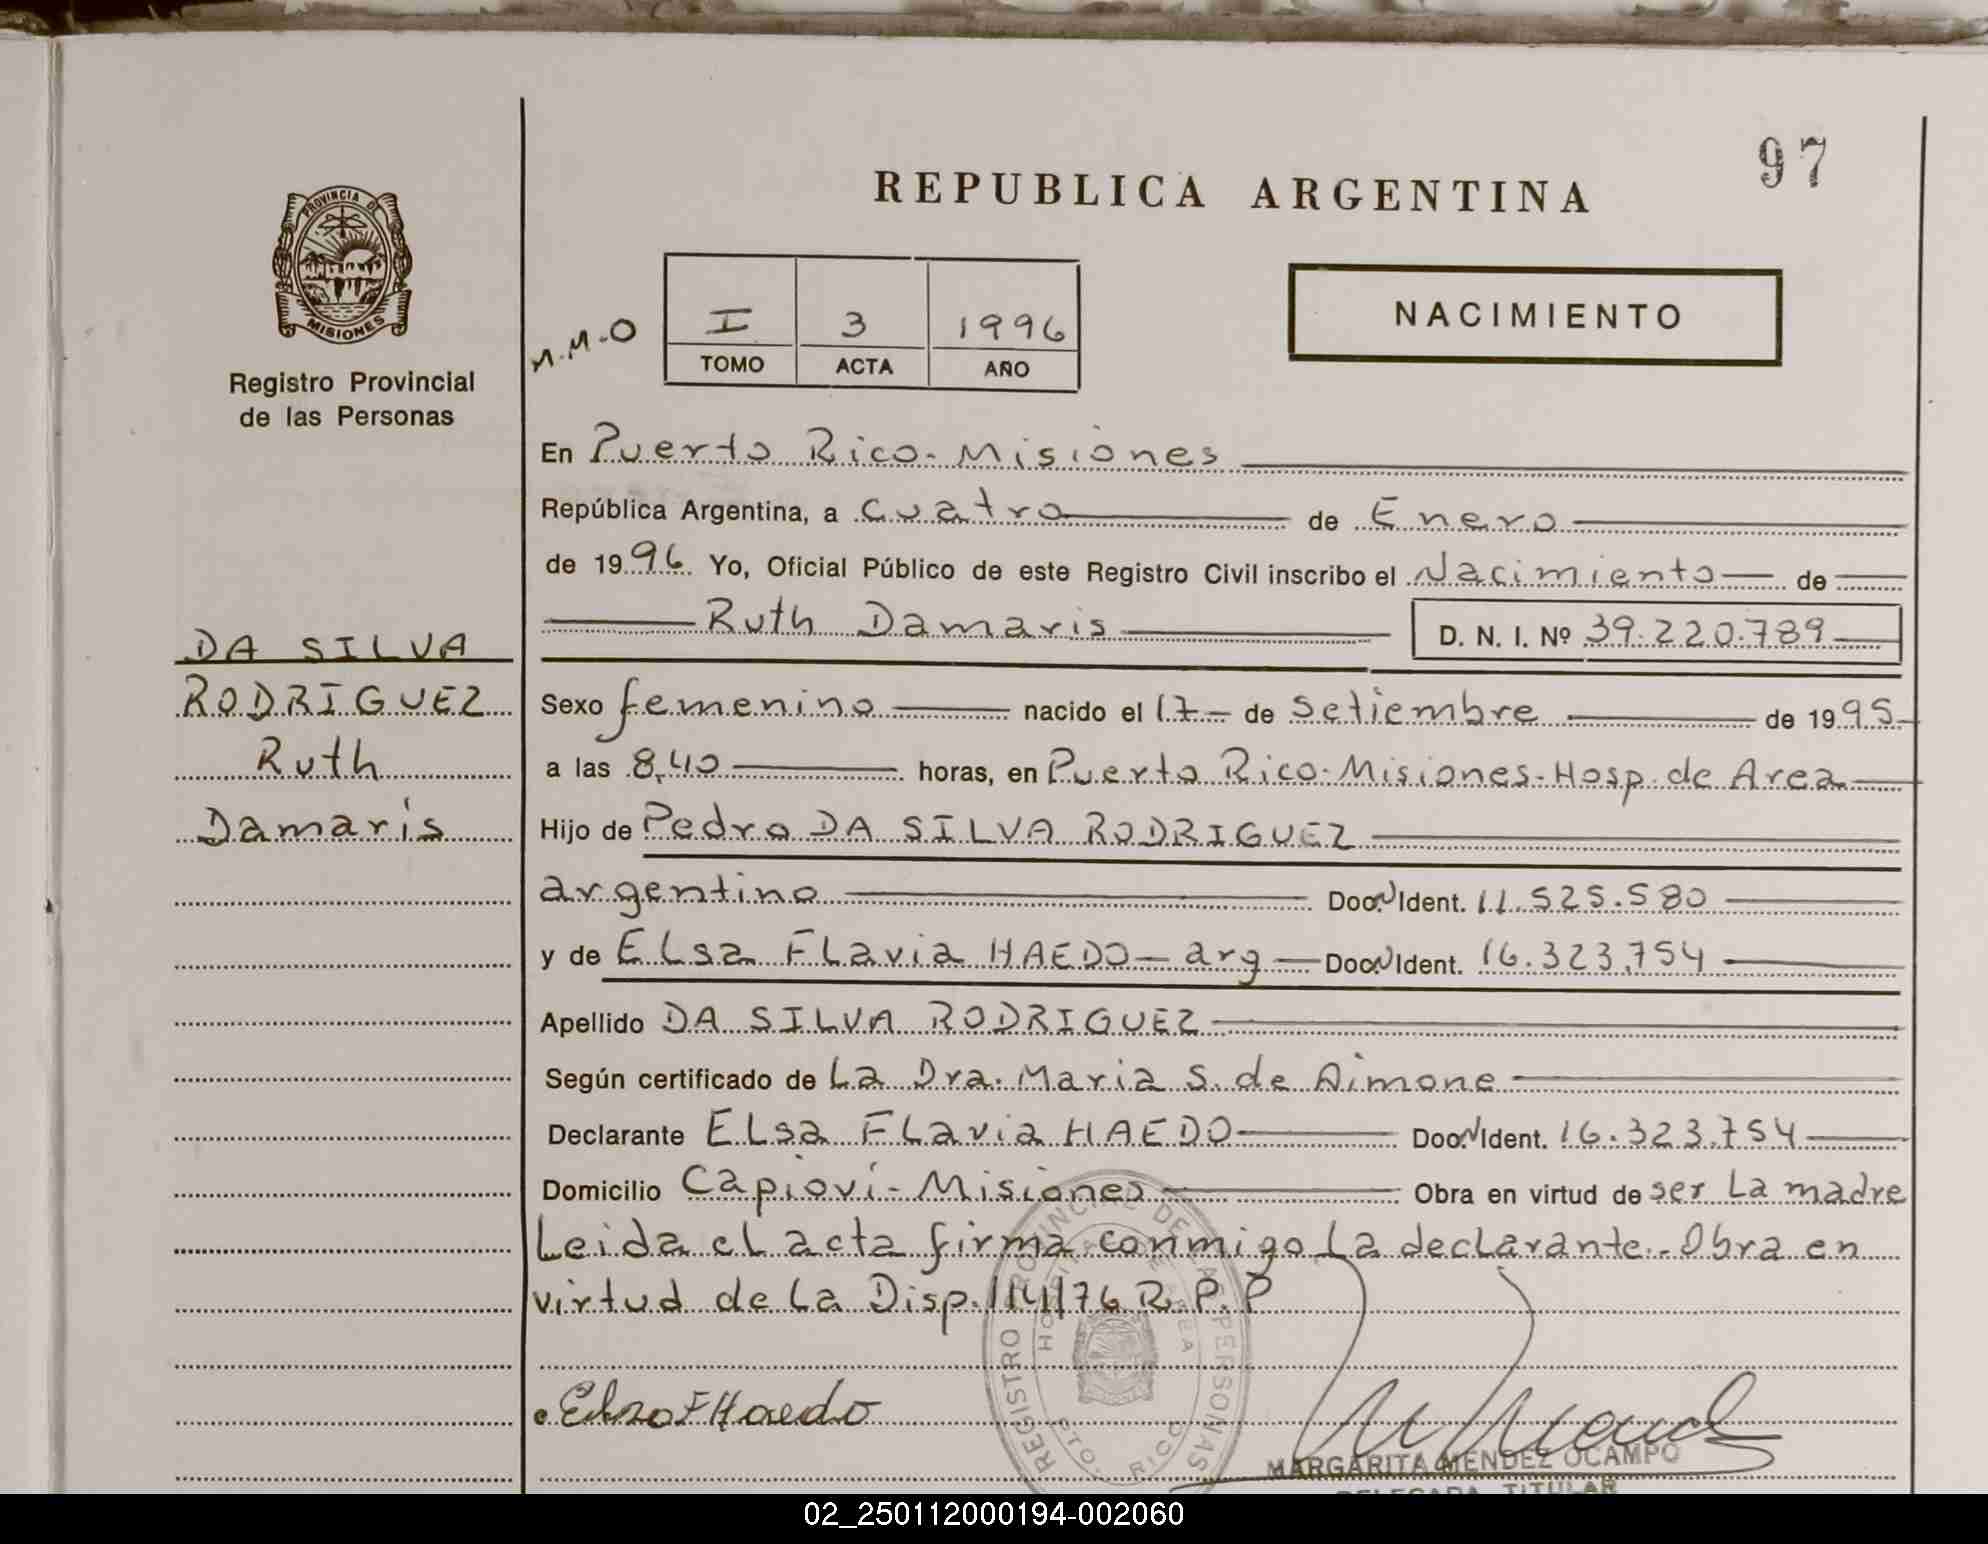 97
REPUBLICA ARGENTINA
PROVINCIA DE
MISIONES
Registro Provincial
de las Personas
M.M.O
I 3 1996
TOMO ACTA AÑO
NACIMIENTO
En Puerto Rico - Misiones
República Argentina, a cuatro de Enero
de 1996 Yo, Oficial Público de este Registro Civil inscribo el Nacimiento de
Ruth Damaris D. N. I. Nº 39.220.789
DA SILVA
RODRIGUEZ
Ruth
Damaris
Sexo femenino nacido el 17 de Setiembre de 1995
a las 8,40 horas, en Puerto Rico - Misiones - Hosp. de Area
Hijo de Pedro DA SILVA RODRIGUEZ
argentino Doc. N Ident. 11.525.580
y de ELsa FLavia HAEDO - arg - Doc. N Ident. 16.323.754
Apellido DA SILVA RODRIGUEZ
Según certificado de La Dra. Maria S. de Aimone
Declarante ELsa FLavia HAEDO Doc. N Ident. 16.323.754
Domicilio Capioví - Misiones Obra en virtud de ser La madre
Leida el acta firma conmigo La declarante. - Obra en
virtud de La Disp. 114/76 R.P.P
REGISTRO PROVINCIAL DE LAS PERSONAS
HOSPITAL DE AREA
PTO. RICO
Elsa F Haedo
MARGARITA MENDEZ OCAMPO
DELEGADA TITULAR
02_250112000194-002060